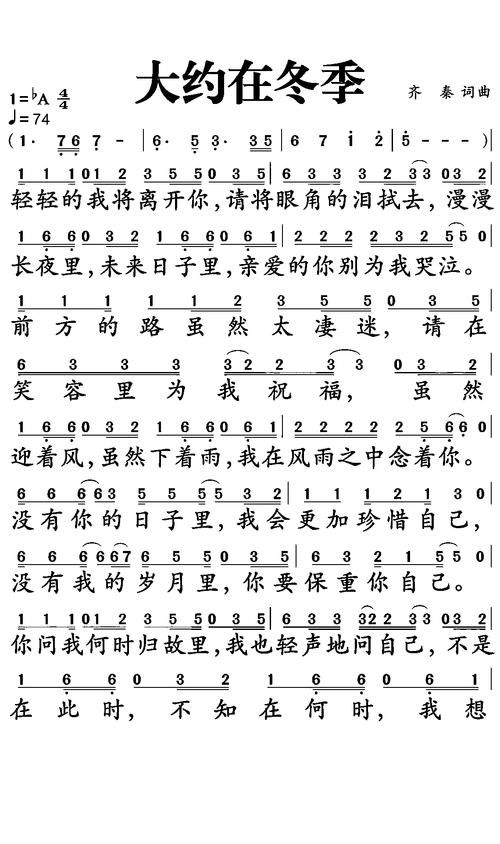 大约在冬季
1=♭A 4/4
齐 秦 词曲
♩=74
(1· 7 6 7 - | 6· 5 3· 3 5 | 6 7 1 2 | 5 - - - )|
1 1 1 0 1 2 3 5 5 0 3 5 | 6 3 3 3 3 2 2 3 3 0 3 2 |
轻轻的我将离开你,请将眼角的泪拭去,漫漫
1 6 6 0 3 2 1 6 6 0 6 1 | 2 2 2 2 3 2 5 5 0 |
长夜里,未来日子里,亲爱的你别为我哭泣。
1 1 1 1 1 2 3 5 5 0 3 5 |
前方的路虽然太凄迷,请在
6 3 3 3 3 2 2 3 3 0 3 2 |
笑容里为我祝福,虽然
1 6 6 0 3 2 1 6 6 0 6 1 | 2 2 2 2 2 5 6 6 0 |
迎着风,虽然下着雨,我在风雨之中念着你。
6 6 6 6 3 5 5 5 5 3 2 | 1 1 1 2 1 3 0 |
没有你的日子里,我会更加珍惜自己,
6 6 6 6 7 6 5 5 0 3 5 | 6 3 2 1 5 5 0 |
没有我的岁月里,你要保重你自己。
1 1 1 0 1 2 3 5 5 0 3 5 | 6 3 3 3 2 2 2 3 3 0 3 2 |
你问我何时归故里,我也轻声地问自己,不是
1 6 6 0 3 2 1 6 6 0 6 1 |
在此时,不知在何时,我想